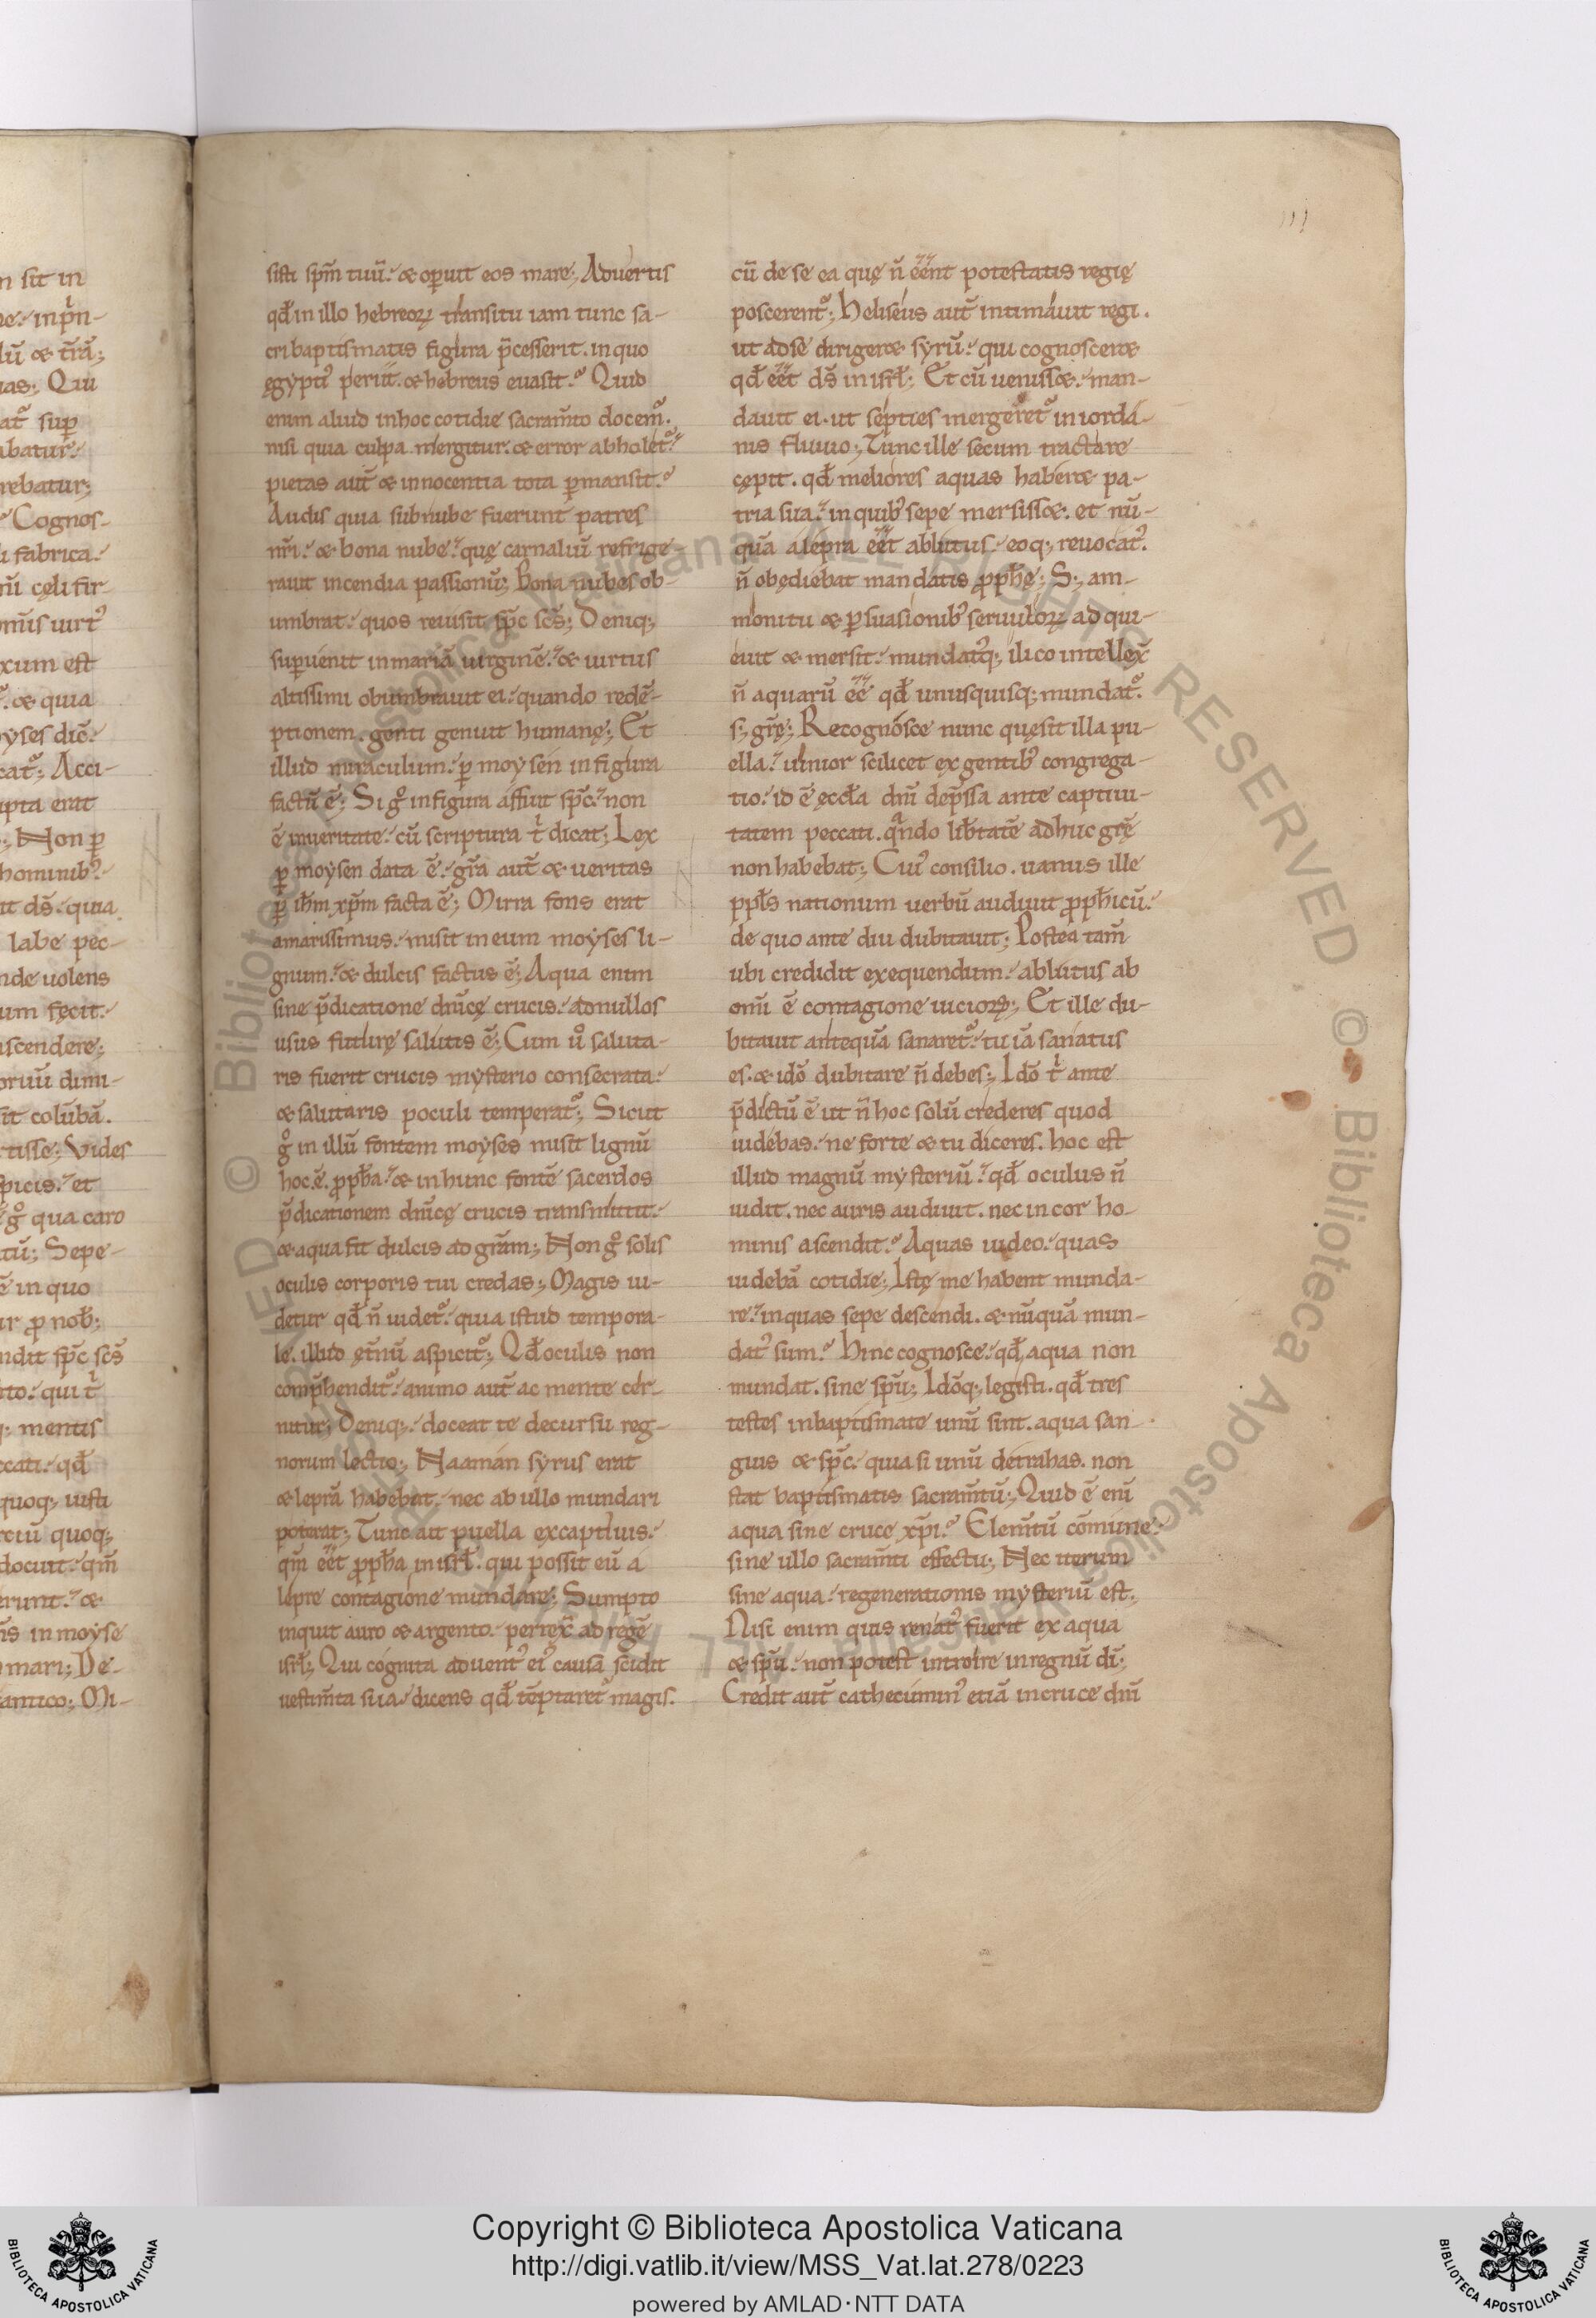 n sit in
ne. inpͥn-
lū & tr̄ā;
uas; Qui
at᷑ sup̱
abatur.
rebatur;
Cognos-
i fabrica.
nū cęli fir-
om̄s uirt᾽
xum est
& quia
oyses dic̄.
cat᷑; Acci-
upta erat
; Non ꝑ
hominib᾽.
it ds̄. quia
labe pec-
nde uolens
um fecit.
scendere;
oruū dimi-
sit colūbā.
rtisse; Vides
spicis. et
gͦ qua caro
tū; Sepe-
ē in quo
ur ꝓ nob̄;
ndit sp̄c sc̄s
tto. qui tͥ
q; mentis
ccati. qd̄
quoq; iusti
rciū quoq;
docuit. qm̄
erunt. &
n̄s in moyse
mari; De-
amico; Mi-
sisti sp̄m tuū. & oꝑuit eos mare; Aduertis
qd̄ in illo hebreoꝝ transitu iam tunc sa-
cri baptismatis figura p̄cesserit. in quo
ęgypti᾽ periit. & hebreus euasit. Quid
enim aliud in hoc cotidie sacram̄to docem᷑.
nisi quia culpa mergitur. & error abholet᷑.
pietas aut̄ & innocentia tota ꝑmansit.
Audis quia sub nube fuerunt patres
nr̄i. & bona nube. quę carnaliū refrige-
rauit incendia passionū; Bona nubes ob-
umbrat. quos reuisit sp̄c sc̄s; Deniq;
suꝑuenit in mariā uirginē. & uirtus
altissimi obumbrauit ei. quando redē-
ptionem genti genuit humanę; Et
illud miraculum. ꝑ moysen in figura
factū ē; Si gͦ in figura affuit sp̄c. non
ē in ueritate. cū scriptura tͥ dicat; Lex
ꝑ moysen data ē. gr̄a aut̄ & ueritas
ꝑ ih̄m xp̄m facta ē; Mirra fons erat
amarissimus. misit in eum moyses li-
gnum. & dulcis factus ē; Aqua enim
sine p̄dicatione dn̄icę crucis. ad nullos
usus futurę salutis ē; Cum uͦ saluta-
ris fuerit crucis mysterio consecrata.
& salutaris poculi temperat᷑; Sicut
gͦ in illū fontem moyses misit lignū
hoc. ē. ꝓph̄a. & in hunc fontē sacerdos
p̄dicationem dn̄icę crucis transmittit.
& aqua fit dulcis ad gr̄am; Non gͦ solis
oculis corporis tui credas; Magis ui-
detur qd̄ n̄ uidet᷑. quia istud tempora-
le. illud ęt̄nū aspicit᷑; Qd̄ oculis non
comp̄hendit᷑. animo aut̄ ac mente cer-
nitur; Deniq;. doceat te decursu reg-
norum lectio; Naaman syrus erat
& leprā habebat. nec ab ullo mundari
poterat; Tunc ait puella ex captiuis.
qm̄ eet̄ ꝓph̄a in isrl̄. qui possit eū a
lepre contagione mundare; Sumpto
inquit auro & argento. perrex̄ ad regē
isrl̄; Qui cognita aduenti᾽ ei᾽ causa scidit
uestim̄ta sua. dicens qd̄ tēptaret᷑ magis.
cū de se ea quę n̄ eent̄ potestatis regię
poscerent᷑; Heliseus aut̄ intimauit regi.
ut ad se dirigeret syrū. qui cognosceret
qd̄ eet̄ ds̄ in isrl̄; Et cū uenisset. man-
dauit ei. ut septies mergeret᷑ in iorda-
nis fluuio; Tunc ille secum tractare
cępit. qd̄ meliores aquas haberet pa-
tria sua. in quib᾽ sepe mersisset. et nū-
quā a lepra eet̄ ablutus. eoq; reuocat᾽.
n̄ obędiebat mandatis ꝓph̄ę; S; am-
monitu & ꝑsuasionib᾽ seruuloꝝ adqui-
euit & mersit. mundat᾽q; ilico intellex̄
n̄ aquarū eē qd̄ unusquisq; mundat᷑.
s; gr̄ę; Recognosce nunc quę sit illa pu-
ella. iunior scilicet ex gentib᾽ congrega-
tio. id ē ęccl̄a dn̄i dep̄ssa ante captiui-
tatem peccati. qͣndo lib̄tatē adhuc gr̄ę
non habebat; Cui᾽ consilio. uanus ille
ppl̄s nationum uerbū audiuit ꝓph̄icū.
de quo ante diu dubitauit; Postea tam̄
ubi credidit exequendum. ablutus ab
om̄i ē contagione uicioꝝ; Et ille du-
bitauit antequā sanaret᷑. tu iā sanatus
es. & idō dubitare n̄ debes; Idō tͥ ante
p̄dictū ē ut n̄ hoc solū crederes quod
uidebas. ne forte & tu diceres. hoc est
illud magnū mysteriū. qd̄ oculus n̄
uidit. nec auris audiuit. nec in cor ho-
minis ascendit. Aquas uideo. quas
uidebā cotidie; Istę me habent munda-
re. in quas sepe descendi. & nūquā mun-
dat᾽ sum. Hinc cognosce. qd̄ aqua non
mundat. sine sp̄u; Idōq; legisti. qd̄ tres
testes in baptismate unū sint. aqua san-
guis & sp̄c. quia si unū detrahas. non
stat baptismatis sacram̄tū; Quid ē enī
aqua sine cruce xp̄i. Elem̄tū cōmune.
sine ullo sacram̄ti effectu; Nec iterum
sine aqua. regenerationis mysteriū est;
Nisi enim quis renat᾽ fuerit ex aqua
& sp̄u. non potest introire in regnū dī;
Credit aut̄ cathecumin᾽ etiā in cruce dn̄i
Copyright © Biblioteca Apostolica Vaticana
http://digi.vatlib.it/view/MSS_Vat.lat.278/0223
powered by AMLAD·NTT DATA
BIBLIOTECA APOSTOLICA VATICANA
BIBLIOTECA APOSTOLICA VATICANA
© Biblioteca Apostolica Vaticana ALL RIGHTS RESERVED © Biblioteca Apostolica Vaticana ALL RIGHTS RESERVED